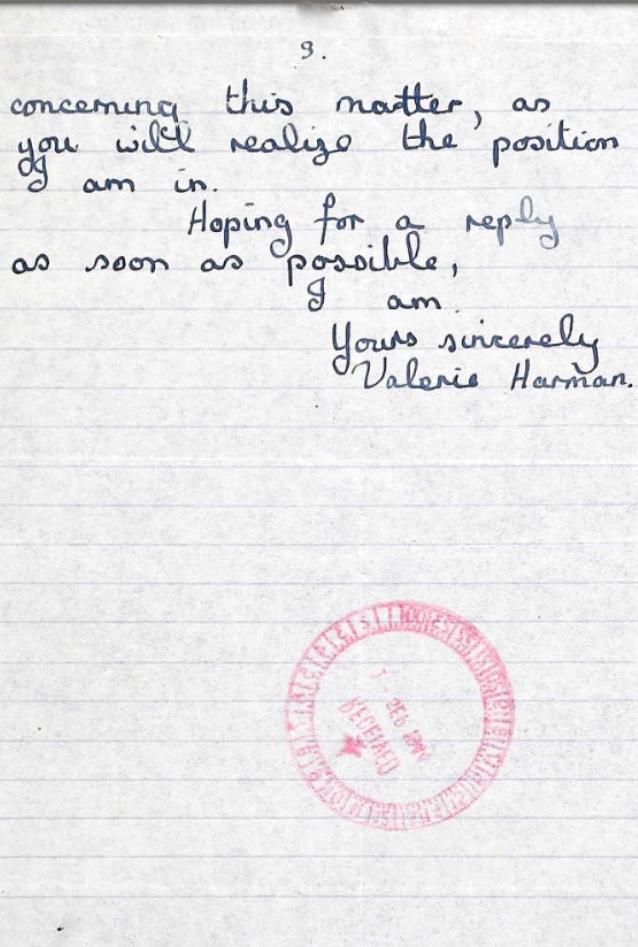 3.
concerning this matter, as
you will realize the position
I am in.
Hoping for a reply
as soon as possible,
I am
Yours sincerely
Valerie Harman.
RECEIVED